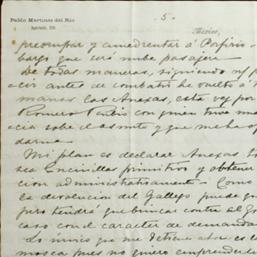 Pablo Martinez del Rio
- 5 -
Mexico,
preocupar y amedrentar á Porfirio
bargo que será nube pasajera
De todas maneras, siguiendo
antes de combatir he vuelto á
manas las Anexas, esta vez por
Romero Rubio con quien tuve una
cia sobre el asunto y que me ha
darme.
Mi plan es declarar Anexas
sea Encinillas primitivo y obtener
cion administrativamente. Como
la devolucion del Gallego puede
pero tendrá que buscar contra el
caso con el caracter de demanda
Lo único que me detiene ahora es
mosca pues no quiero emprender